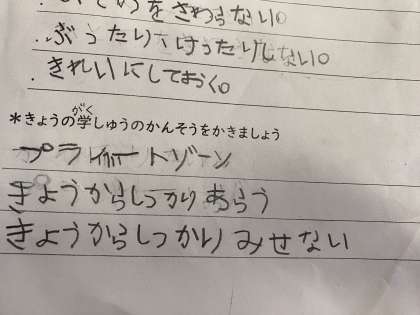 をさわらない。
・ぶったり、けったりしない。
・きれいにしておく。
*きょうの学しゅうのかんそうをかきましょう
がく
プライベートゾーン
きょうからしっかりあらう
きょうからしっかりみせない